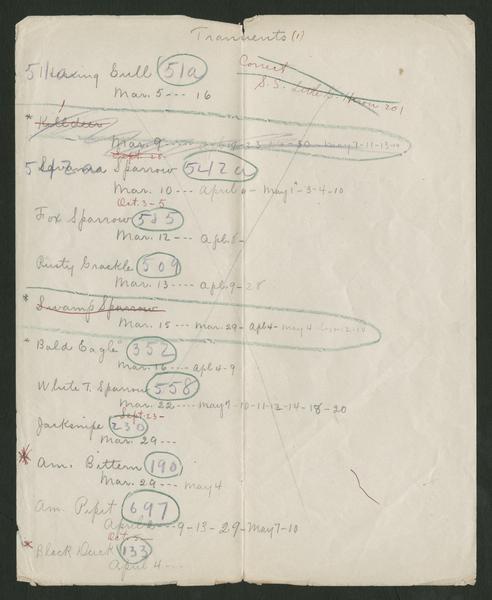 Transients (1)
Correct
51a Herring Gull 51a
S. S. Little B. Heron 201
Mar. 5 --- 16
* Killdeer
Mar. 9
Sept. 28
542a Savanna Sparrow 542a
Mar. 10 --- April 6 - May 1-3-4-10
Oct. 3-5
Fox Sparrow 585
Mar. 12 --- Apl. 8-
Rusty Grackle 509
Mar. 13 ---- Apl. 9-28
* Swamp Sparrow
Mar. 15 --- Mar. 29- Apl 4- May 4
* Bald Eagle 352
Mar. 16 --- Apl 4-9
White T. Sparrow 558
Mar. 22 ---- May 7-10-11-12-14-18-20
Sept. 23-
Jacksnipe 230
Mar. 29 ---
* Am. Bittern 190
Mar. 29 --- May 4
Am. Pipit 697
April 2 --- 9-13-29-May 7-10
Oct. 5-
* Black Duck 133
April 4 ----